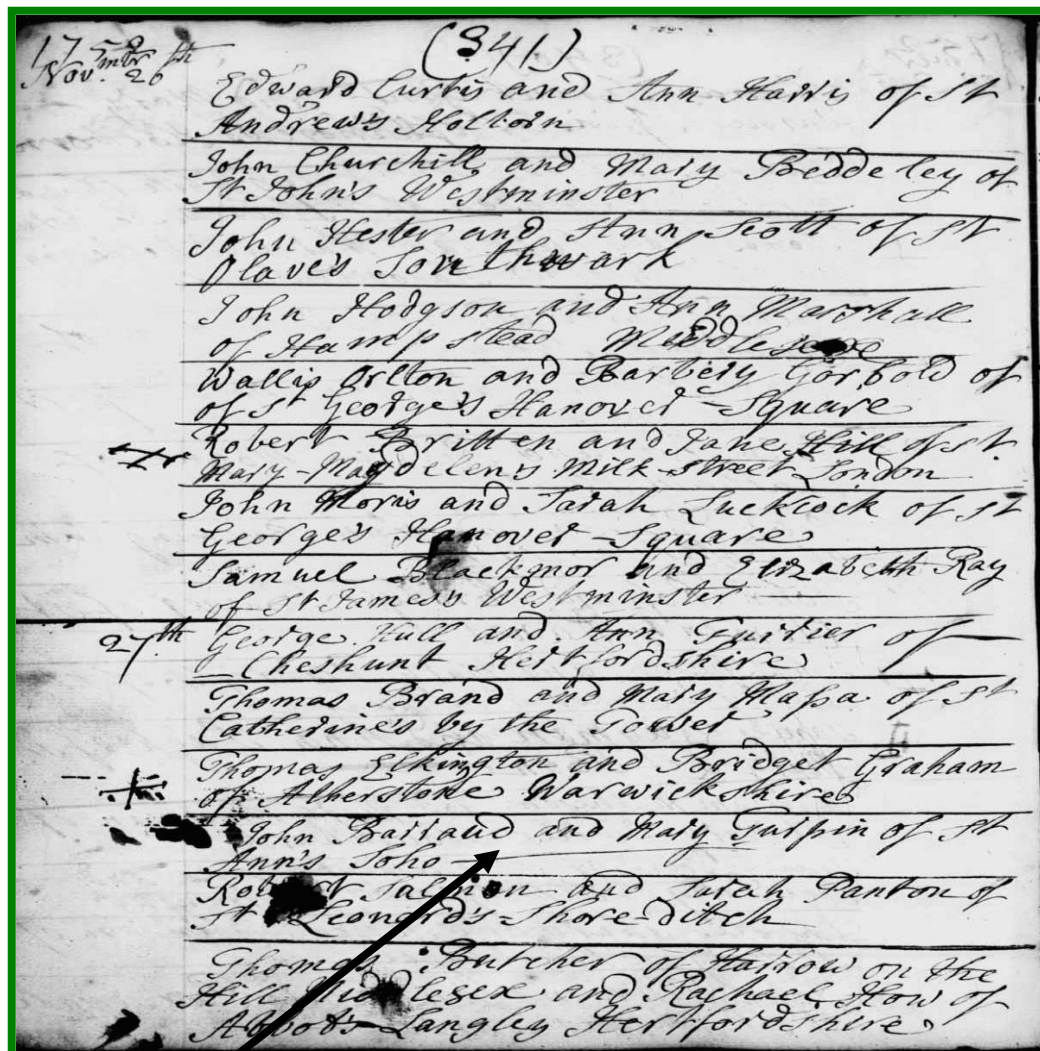 1752
(341)
Nov.mbr 26th
Edward Curtis and Ann Harris of St
Andrew's Holborn
John Churchill and Mary Beddeley of
St John's Westminster
John Hester and Ann Scott of St
Olave's Southwark
John Hodgson and Ann Marshall
of Hampstead Middlesexe
Wallis Orlton and Barbery Gorbold of
of St George's Hanover-Square
Robert Britten and Jane Hill of St.
Mary-Magdelens Milk-street London
John Moris and Sarah Luckcock of St
George's Hanover-Square
Samuel Blackmor and Elizabeth Ray
of St James's Westminster
27th George Hull and Ann Furrier of
Cheshunt Hertfordshire
Thomas Brand and Mary Massa of St
Catherine's by the Tower
Thomas Elkington and Bridget Graham
of Atherstone Warwickshire
John Barraud and Mary Turpin of St
Ann's Soho
Robert Salmon and Sarah Panton of
St Leonard's Shore-ditch
Thomas Butcher of Harrow on the
Hill Middlesex and Rachael How of
Abbot's-Langley Hertfordshire